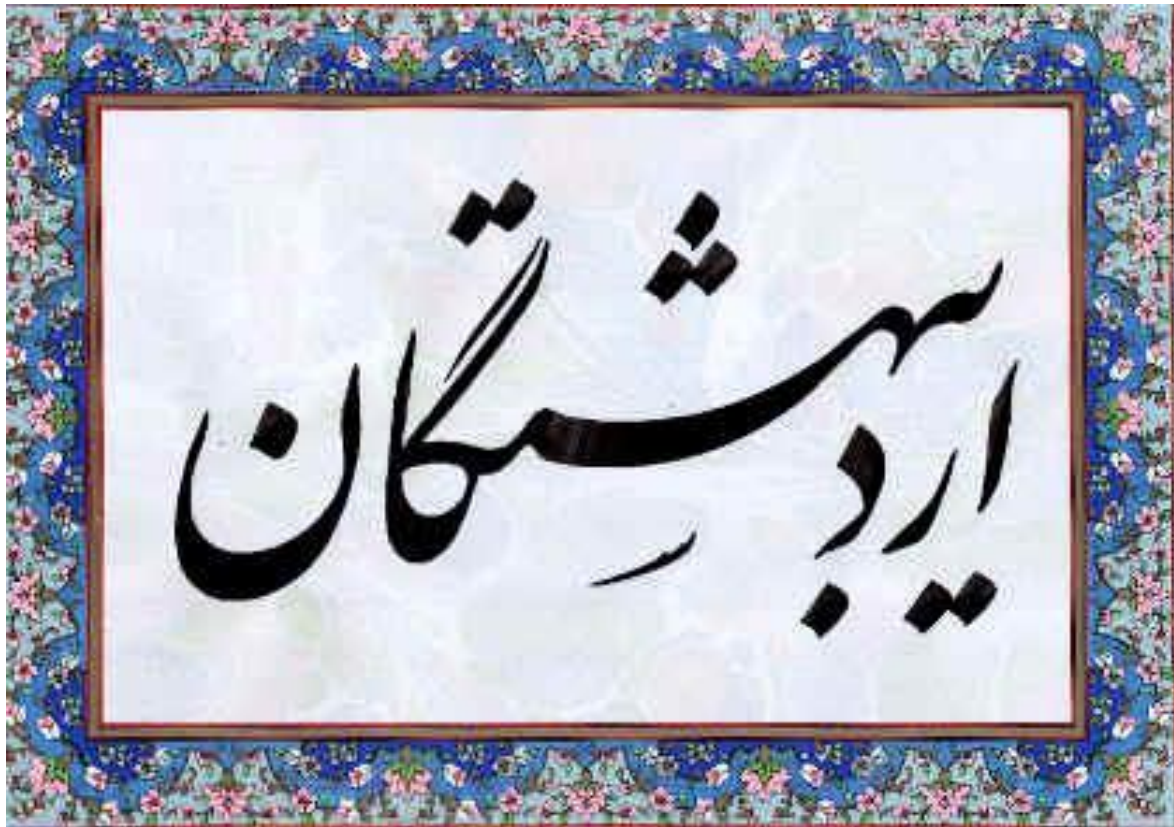 اردیبهشتگان